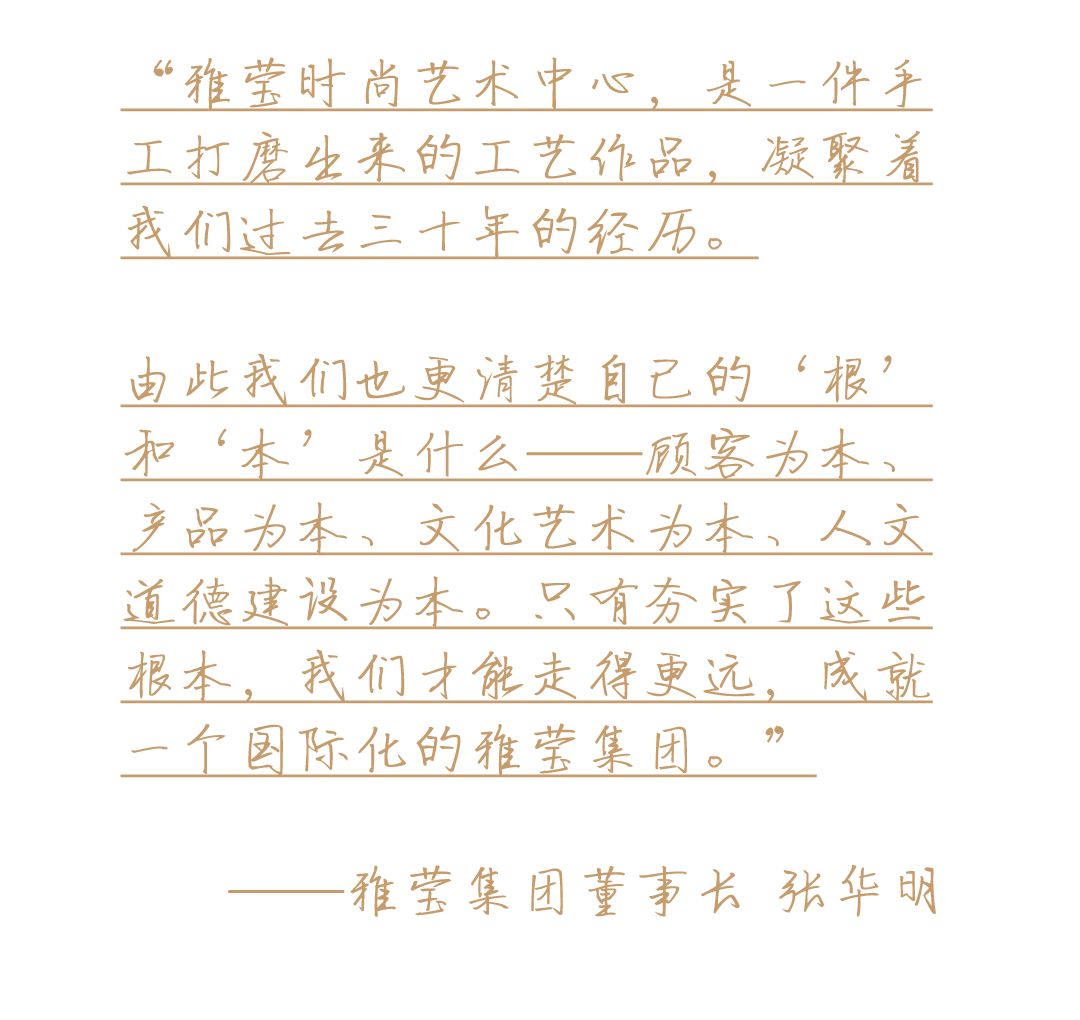 “雅莹时尚艺术中心，是一件手
工打磨出来的工艺作品，凝聚着
我们过去三十年的经历。
由此我们也更清楚自己的‘根’
和‘本’是什么——顾客为本、
产品为本、文化艺术为本、人文
道德建设为本。只有夯实了这些
根本，我们才能走得更远，成就
一个国际化的雅莹集团。”
——雅莹集团董事长 张华明